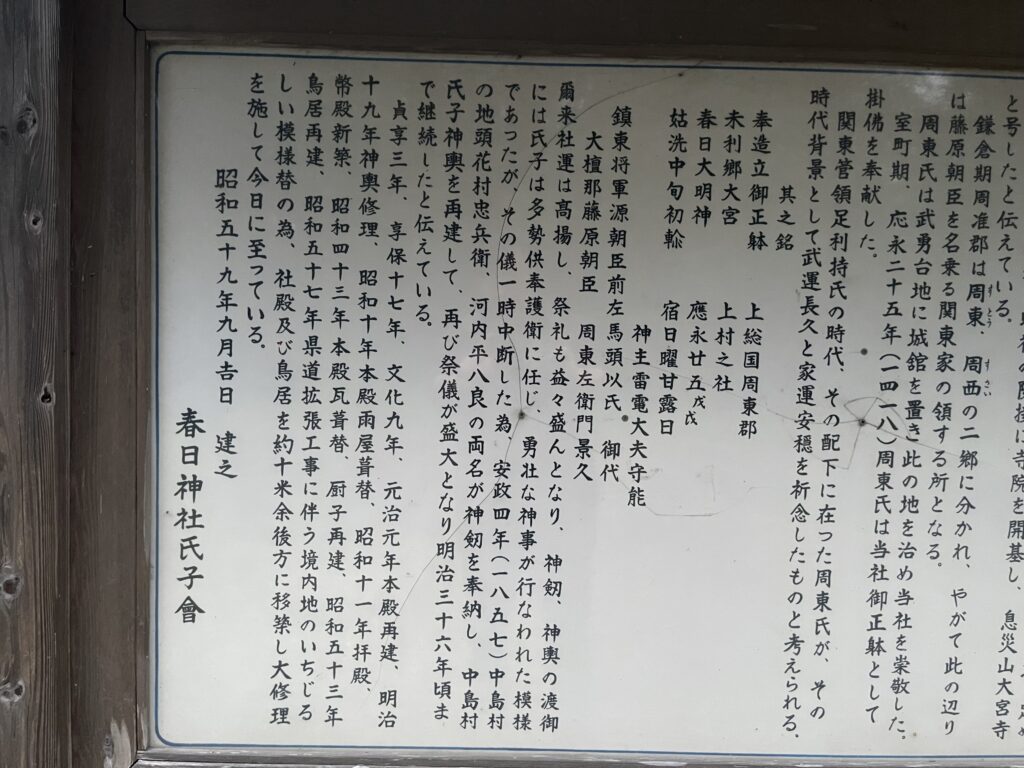 と号したと伝えている。
鎌倉期周准郡は周東、周西の二郷に分かれ、やがて此の辺り
は藤原朝臣を名乗る関東家の領する所となる。
周東氏は武勇台地に城館を置き此の地を治め当社を崇敬した。
室町期、応永二十五年(一四一八)周東氏は当社御正躰として
掛佛を奉献した。
関東管領足利持氏の時代、その配下に在った周東氏が、その
時代背景として武運長久と家運安穏を祈念したものと考えられる。
其之銘
奉造立御正躰 上総国周東郡
末利郷大宮 上村之社
春日大明神 應永廿五戊戌
姑洗中旬初 宿日曜甘露日
神主雷電大夫守能
鎮東将軍源朝臣前左馬頭以氏 御代
大檀那藤原朝臣 周東左衛門景久
爾来社運は高揚し、祭礼も益々盛んとなり、神剱、神輿の渡御
には氏子は多勢供奉護衛に任じ、勇壮な神事が行なわれた模様
であったが、その儀一時中断した為、安政四年(一八五七)中島村
の地頭花村忠兵衛、河内平八良の両名が神剱を奉納し、中島村
氏子神輿を再建して、再び祭儀が盛大となり明治三十六年頃ま
で継続したと伝えている。
貞享三年、享保十七年、文化九年、元治元年本殿再建、明治
十九年神輿修理、昭和十年本殿雨屋葺替、昭和十一年拝殿、
幣殿新築、昭和四十三年本殿瓦葺替、厨子再建、昭和五十三年
鳥居再建、昭和五十七年県道拡張工事に伴う境内地のいちじる
しい模様替の為、社殿及び鳥居を約十米余後方に移築し大修理
を施して今日に至っている。
昭和五十九年九月吉日 建之
春日神社氏子會